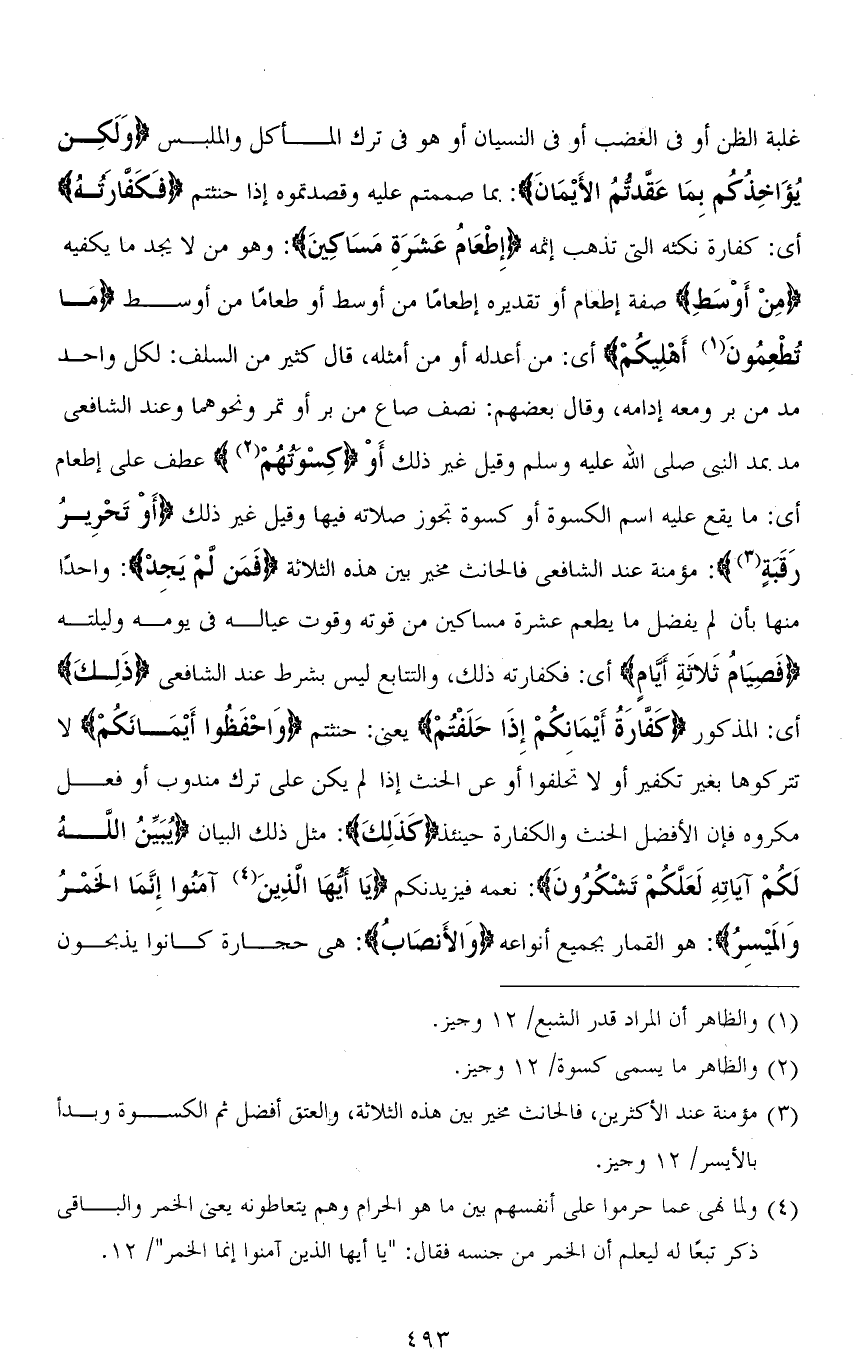 غلبة الظن أو فى الغضب أو فى النسيان أو هو فى ترك المأكل والملبس ﴿وَلَكِن
يُؤَاخِذُكُم بِمَا عَقَّدتُّمُ الأَيْمَانَ﴾: بما صممتم عليه وقصدتموه إذا حنثتم ﴿فَكَفَّارَتُهُ﴾
أى: كفارة نكثه التى تذهب إثمه ﴿إِطْعَامُ عَشَرَةِ مَسَاكِينَ﴾: وهو من لا يجد ما يكفيه
﴿مِنْ أَوْسَطِ﴾ صفة إطعام أو تقديره إطعامًا من أوسط أو طعامًا من أوسط ﴿مَا
تُطْعِمُونَ(١) أَهْلِيكُمْ﴾ أى: من أعدله أو من أمثله، قال كثير من السلف: لكل واحد
مد من بر ومعه إدامه، وقال بعضهم: نصف صاع من بر أو تمر ونحوهما وعند الشافعى
مد بمد النبى صلى الله عليه وسلم وقيل غير ذلك أَوْ ﴿كِسْوَتُهُمْ(٢)﴾ عطف على إطعام
أى: ما يقع عليه اسم الكسوة أو كسوة تجوز صلاته فيها وقيل غير ذلك ﴿أَوْ تَحْرِيرُ
رَقَبَةٍ(٣)﴾: مؤمنة عند الشافعى فالحانث مخير بين هذه الثلاثة ﴿فَمَن لَّمْ يَجِدْ﴾: واحدًا
منها بأن لم يفضل ما يطعم عشرة مساكين من قوته وقوت عياله فى يومه وليلته
﴿فَصِيَامُ ثَلاثَةِ أَيَّامٍ﴾ أى: فكفارته ذلك، والتتابع ليس بشرط عند الشافعى ﴿ذَلِكَ﴾
أى: المذكور ﴿كَفَّارَةُ أَيْمَانِكُمْ إِذَا حَلَفْتُمْ﴾ يعنى: حنثتم ﴿وَاحْفَظُوا أَيْمَانَكُمْ﴾ لا
تتركوها بغير تكفير أو لا تحلفوا أو عن الحنث إذا لم يكن على ترك مندوب أو فعل
مكروه فإن الأفضل الحنث والكفارة حينئذ﴿كَذَلِكَ﴾: مثل ذلك البيان ﴿يُبَيِّنُ اللَّهُ
لَكُمْ آيَاتِهِ لَعَلَّكُمْ تَشْكُرُونَ﴾: نعمه فيزيدنكم ﴿يَا أَيُّهَا الَّذِينَ(٤) آمَنُوا إِنَّمَا الخَمْرُ
وَالمَيْسِرُ﴾: هو القمار بجميع أنواعه ﴿وَالأَنصَابُ﴾: هى حجارة كانوا يذبحون
(١) والظاهر أن المراد قدر الشبع/ ١٢ وجيز.
(٢) والظاهر ما يسمى كسوة/ ١٢ وجيز.
(٣) مؤمنة عند الأكثرين، فالحانث مخير بين هذه الثلاثة، والعتق أفضل ثم الكسوة وبدأ
بالأيسر/ ١٢ وجيز.
(٤) ولما نهى عما حرموا على أنفسهم بين ما هو الحرام وهم يتعاطونه يعنى الخمر والباقى
ذكر تبعًا له ليعلم أن الخمر من جنسه فقال: "يا أيها الذين آمنوا إنما الخمر"/ ١٢.
٤٩٣